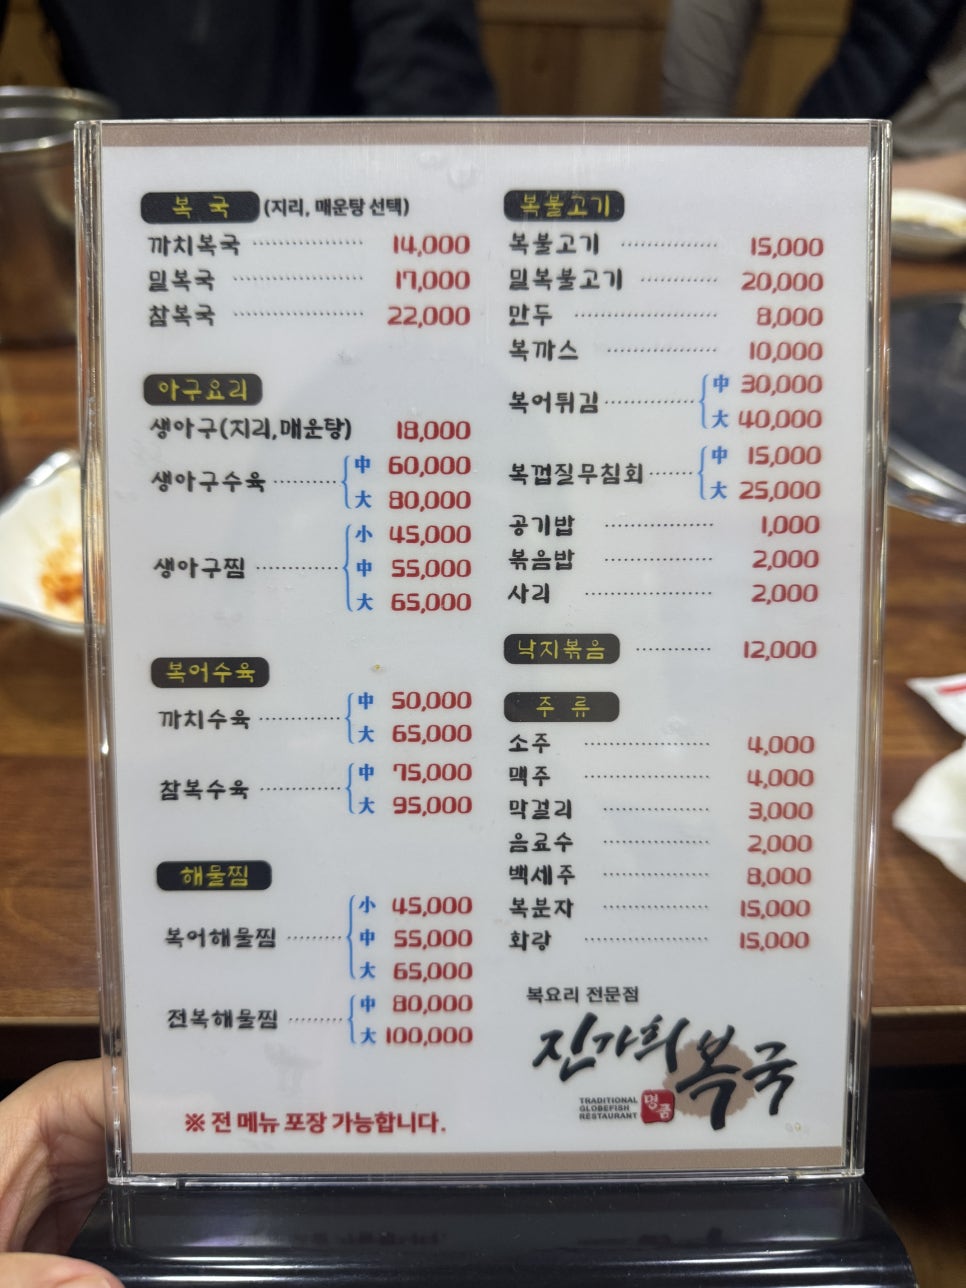 복 국 (지리, 매운탕 선택)
까치복국 14,000
밀복국 17,000
참복국 22,000
아구요리
생아구(지리,매운탕) 18,000
생아구수육 中 60,000
大 80,000
생아구찜 小 45,000
中 55,000
大 65,000
복어수육
까치수육 中 50,000
大 65,000
참복수육 中 75,000
大 95,000
해물찜
복어해물찜 小 45,000
中 55,000
大 65,000
전복해물찜 中 80,000
大 100,000
※ 전 메뉴 포장 가능합니다.
복불고기
복불고기 15,000
밀복불고기 20,000
만두 8,000
복까스 10,000
복어튀김 中 30,000
大 40,000
복껍질무침회 中 15,000
大 25,000
공기밥 1,000
볶음밥 2,000
사리 2,000
낙지볶음 12,000
주 류
소주 4,000
맥주 4,000
막걸리 3,000
음료수 2,000
백세주 8,000
복분자 15,000
화랑 15,000
복요리 전문점
진가희복국
TRADITIONAL
GLOBEFISH
RESTAURANT
명품